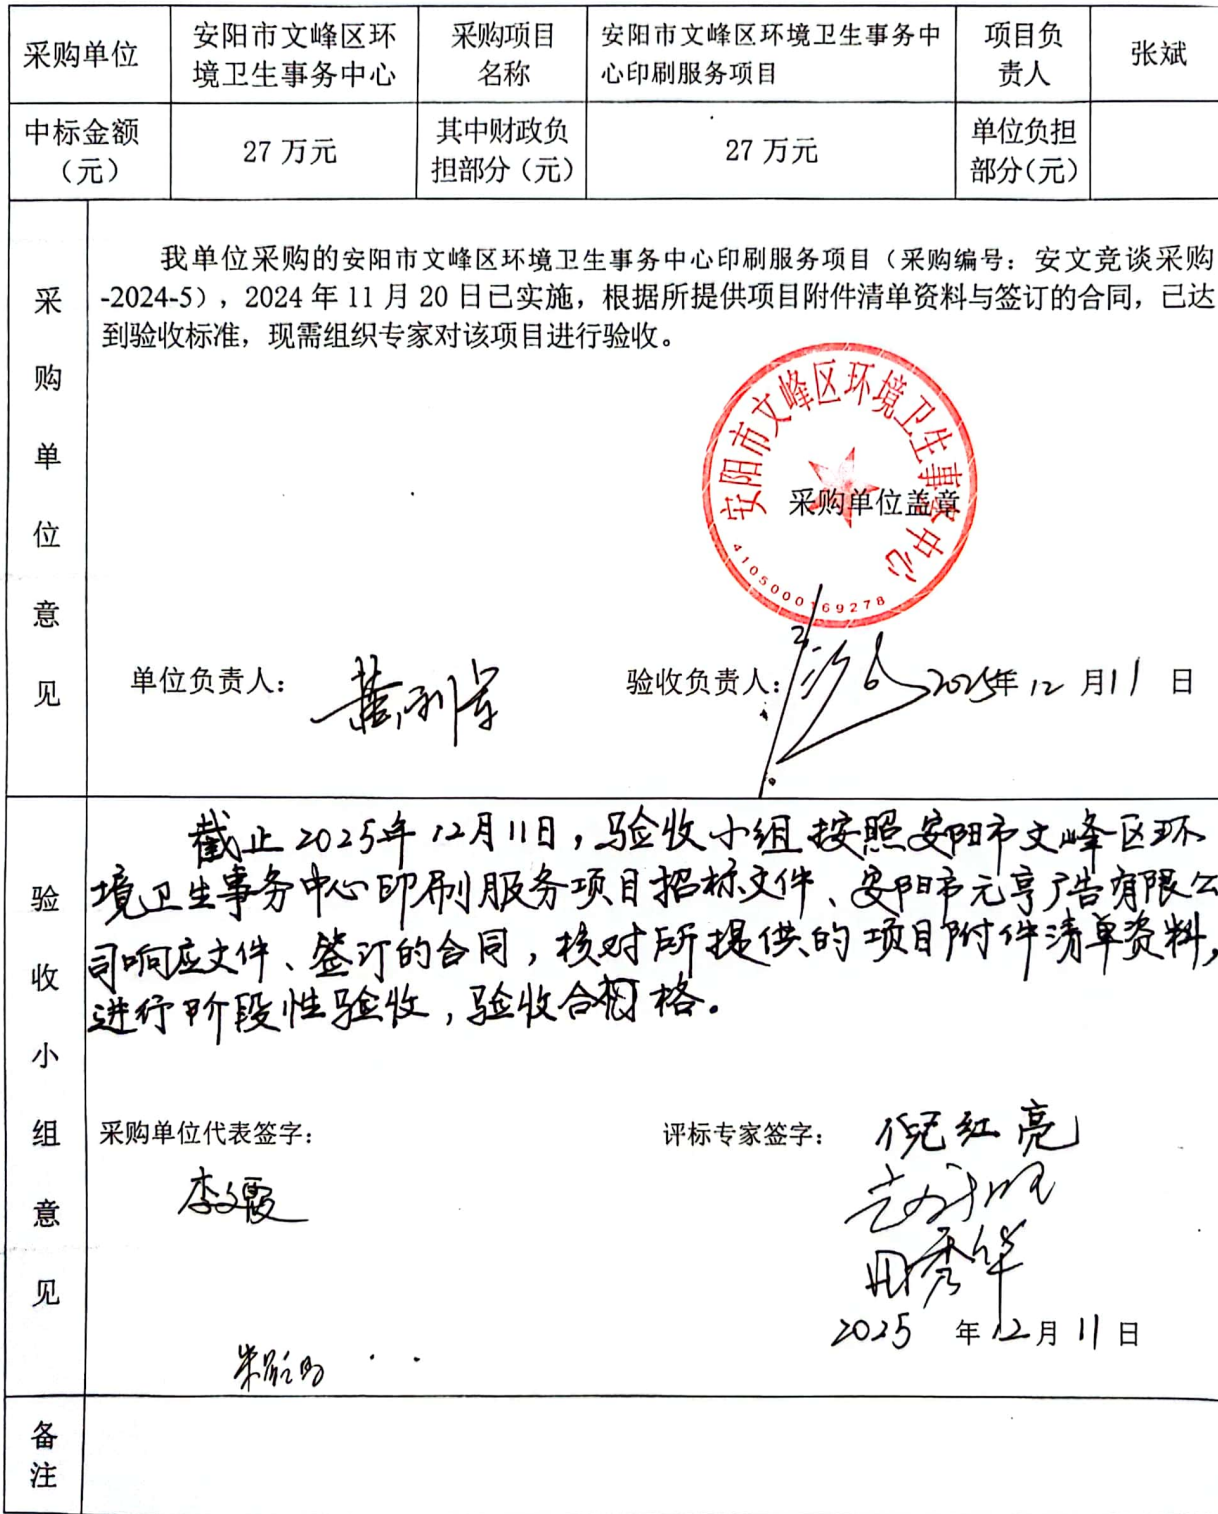 采购单位
安阳市文峰区环
境卫生事务中心
采购项目
名称
安阳市文峰区环境卫生事务中
心印刷服务项目
项目负
责人
张斌
中标金额
（元）
27 万元
其中财政负
担部分（元）
27 万元
单位负担
部分（元）
采购单位意见
我单位采购的安阳市文峰区环境卫生事务中心印刷服务项目（采购编号：安文竞谈采购
-2024-5），2024 年 11 月 20 日已实施，根据所提供项目附件清单资料与签订的合同，已达
到验收标准，现需组织专家对该项目进行验收。
安阳市文峰区环境卫生事务中心
采购单位盖章
4105000169278
单位负责人：
验收负责人：
2025年 12 月 11 日
验收小组意见
截止 2025年 12月11日，验收小组按照安阳市文峰区环
境卫生事务中心印刷服务项目招标文件、安阳市元亨广告有限公
司响应文件、签订的合同，核对所提供的项目附件清单资料，
进行阶段性验收，验收合格。
采购单位代表签字：
评标专家签字： 倪红亮
李文霞
田秀华
2025 年 12 月 11 日
备注